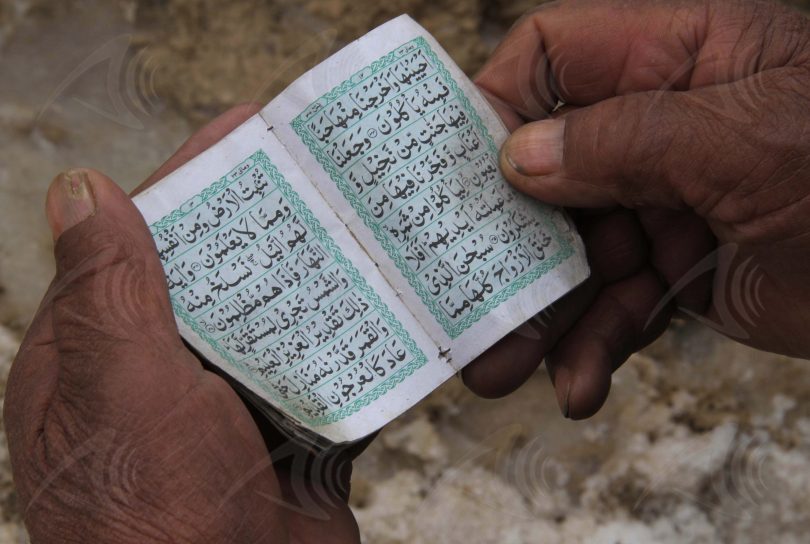 اَحْيَيْنٰهَا وَاَخْرَجْنَا مِنْهَا حَبًّا
فَمِنْهُ يَاْكُلُوْنَ وَجَعَلْنَا
فِيْهَا جَنّٰتٍ مِّنْ نَّخِيْلٍ وَّ
اَعْنَابٍ وَّفَجَّرْنَا فِيْهَا مِنَ
الْعُيُوْنِ لِيَاْكُلُوْا مِنْ ثَمَرِهٖ
وَمَا عَمِلَتْهُ اَيْدِيْهِمْ اَفَلَا
يَشْكُرُوْنَ سُبْحٰنَ الَّذِيْ
خَلَقَ الْاَزْوَاجَ كُلَّهَا مِمَّا
تُنْۢبِتُ الْاَرْضُ وَمِنْ اَنْفُسِهِمْ
وَمِمَّا لَا يَعْلَمُوْنَ وَاٰيَةٌ
لَّهُمُ الَّيْلُ نَسْلَخُ مِنْهُ
النَّهَارَ فَاِذَا هُمْ مُّظْلِمُوْنَ
وَالشَّمْسُ تَجْرِيْ لِمُسْتَقَرٍّ لَّهَا
ذٰلِكَ تَقْدِيْرُ الْعَزِيْزِ الْعَلِيْمِ
وَالْقَمَرَ قَدَّرْنٰهُ مَنَازِلَ حَتّٰى
عَادَ كَالْعُرْجُوْنِ الْقَدِيْمِ